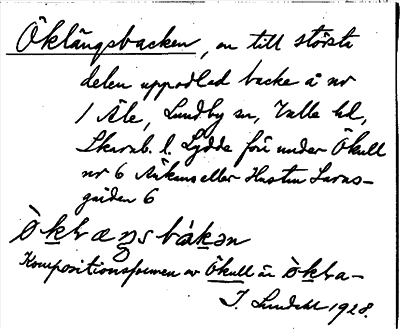 Öklängsbacken, en till största
delen uppodlad backe å nr
1 Åle, Lundby sn, Valle hd,
Skarab. l. Lydde förr under Ökull
nr 6 eller Larus-
gården 6
ò̀kɫæŋsbàkən
Kompositionsformen av Ökull är òkɫa-
J. Lundahl 1928.